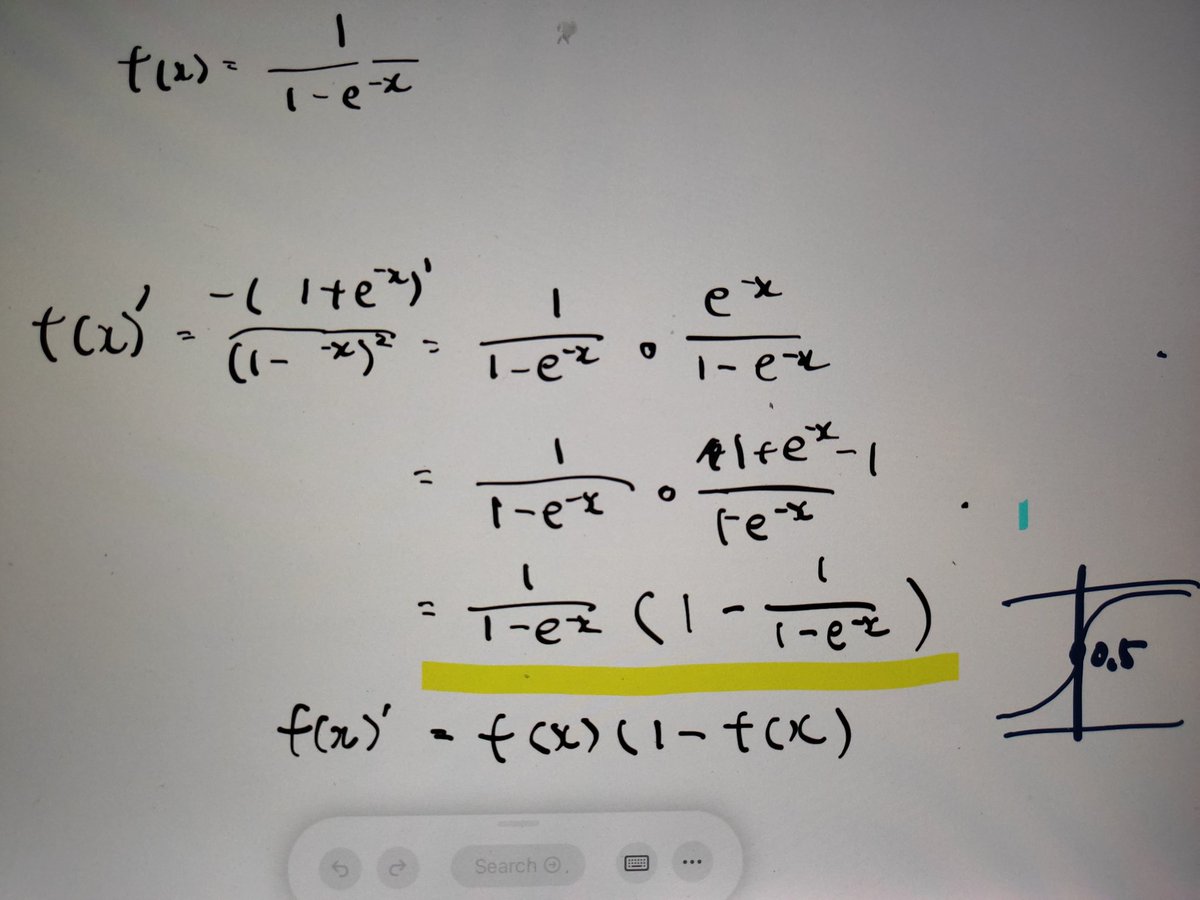 f(x) = 1 / (1 - e^-x)
f(x)' = -(1+e^-x)' / (1- -x)^2 = 1 / (1-e^-x) ∘ e^-x / (1-e^-x)
= 1 / (1-e^-x) ∘ (1+e^-x-1) / (1-e^-x)
= 1 / (1-e^-x) (1 - 1 / (1-e^-x))
0.5
f(x)' = f(x)(1-f(x)
Search